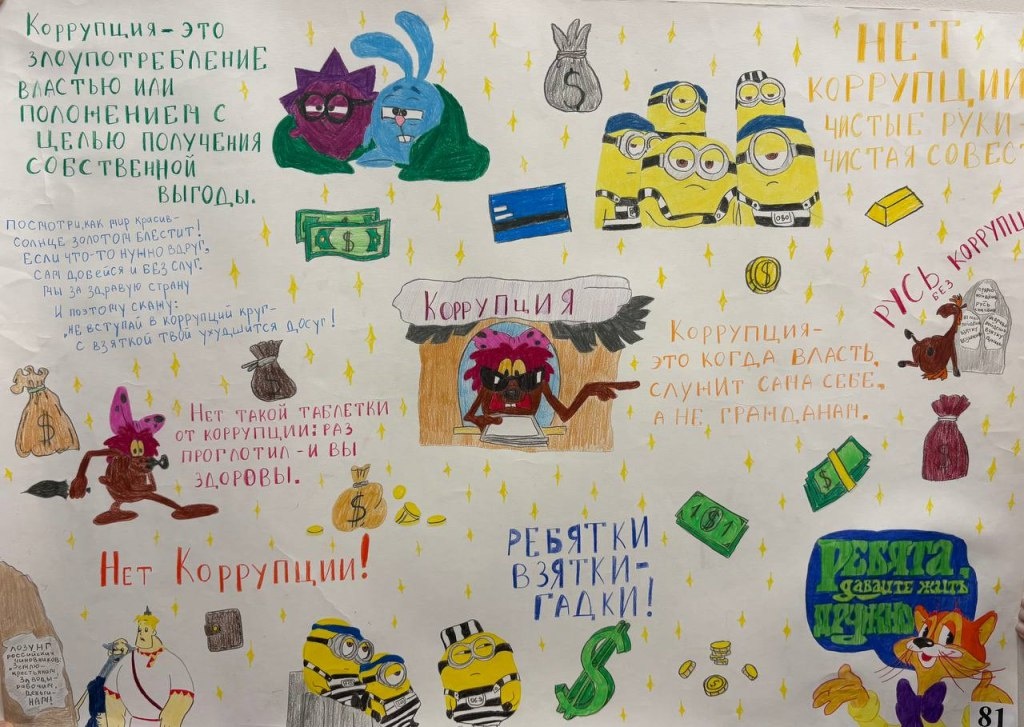 Коррупция - это
злоупотребление
властью или
положением с
целью получения
собственной
выгоды.
НЕТ
КОРРУПЦИИ
ЧИСТЫЕ РУКИ-
ЧИСТАЯ СОВЕСТ
Посмотри, как мир красив-
Солнце золотом блестит!
Если что-то нужно вдруг,
Сам добейся и без слуг.
Мы за здравую страну
И поэтому скажу:
"Не вступай в коррупций круг-
С взяткой твой ухудшится досуг!
Коррупция
Русь
без
коррупц
Коррупция-
это когда власть,
служит сама себе,
а не гражданам.
Нет такой таблетки
от коррупции: раз
проглотил - и вы
здоровы.
Нет Коррупции!
Ребятки
взятки-
гадки!
Ребята,
давайте жить
дружно
Лозунг
российских
чиновников:
"Землю-
крестьянам
Заводы-
рабочим,
Деньги-
НАМ!
81